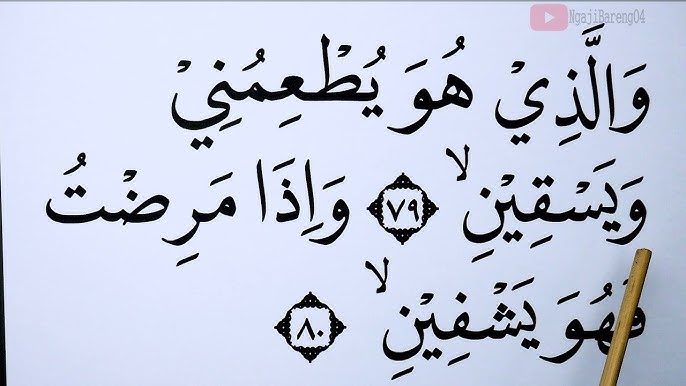 NgajiBareng04
وَالَّذِيْ هُوَ يُطْعِمُنِيْ
وَيَسْقِيْنِ ۙ ﴿٧٩﴾ وَاِذَا مَرِضْتُ
فَهُوَ يَشْفِيْنِ ۙ ﴿٨٠﴾